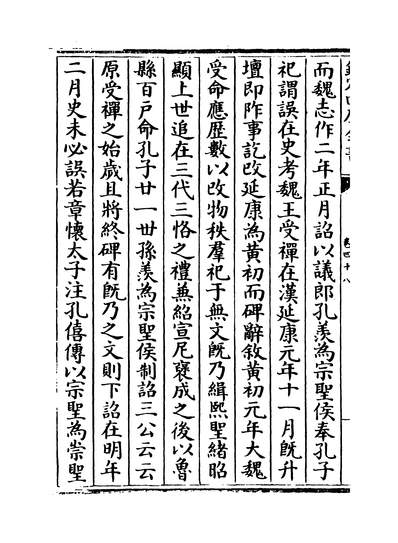 而魏志作二年正月詔以議郎孔羡為宗聖侯奉孔子
祀謂誤在史考魏王受禪在漢延康元年十一月既升
壇即阼事訖改延康為黄初而碑辭敘黄初元年大魏
受命應歴數以改物秩羣祀于無文既乃緝熙聖緒昭
顯上世追在三代三恪之禮兼紹宣尼襃成之後以魯
縣百戸命孔子廿一世孫羡為宗聖侯制詔三公云云
原受禪之始歳且將終碑有既乃之文則下詔在明年
二月史未必誤若章懷太子注孔僖傳以宗聖為崇聖